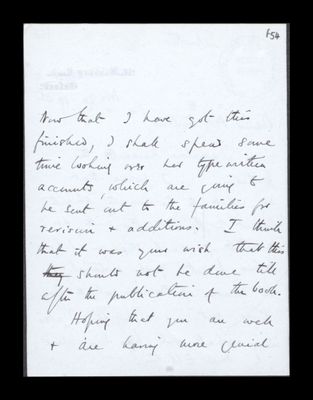 154
Now that I have got this
finished, I shall spend some
time looking over her type written
accounts, which are going to
be sent out to the families for
revision & additions. I think
that it was your wish that this
should not be done till
after the publication of the book.
Hoping that you are well
& are having more genial